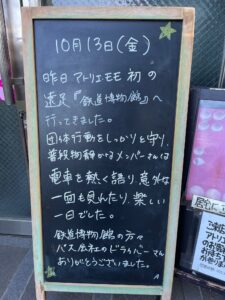 10月13日(金)
昨日アトリエモモ初の
遠足『鉄道博物館』へ
行ってきました。
団体行動をしっかりと守り、
普段物静かなメンバーさんは
電車を熱く語り、意外な
一面も見れたり、楽しい
一日でした。
鉄道博物館の方々
バス会社のドライバーさん
ありがとうございました。